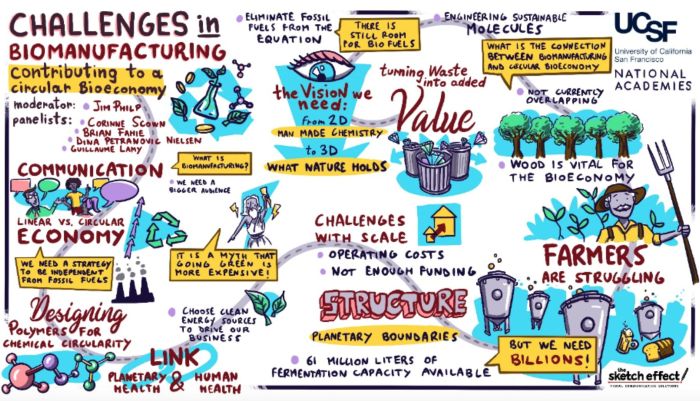 CHALLENGES in
BIOMANUFACTURING
Contributing to a
circular Bioeconomy
moderator:
• Jim Philp
panelists:
• Corinne Scown
• Brian Fahie
• Dina Petranovic Nielsen
• Guillaume Lamy
COMMUNICATION
What is
Biomanufacturing?
• We need a
bigger audience
Linear vs. Circular
ECONOMY
We need a strategy
to be independent
from fossil fuels
It is a myth that
going green is
more expensive!
Designing
Polymers for
chemical circularity
• Choose clean
energy sources
to drive our
business
LINK
Planetary & Human
Health Health
• Eliminate fossil
fuels from the
equation
There is
still room
for bio fuels
the Vision we
need:
From 2D
man made chemistry
to 3D
What nature holds
turning Waste
into added
Value
• Engineering sustainable
molecules
What is the connection
between biomanufacturing
and circular bioeconomy
• Not currently
overlapping
• Wood is vital for
the bioeconomy
UCSF
University of California
San Francisco
NATIONAL
ACADEMIES
FARMERS
are struggling
Challenges
with scale
• Operating costs
• Not enough funding
STRUCTURE
Planetary boundaries
• 61 million liters of
fermentation capacity available
But we need
BILLIONS!
the
sketch effect
VISUAL COMMUNICATION SOLUTIONS